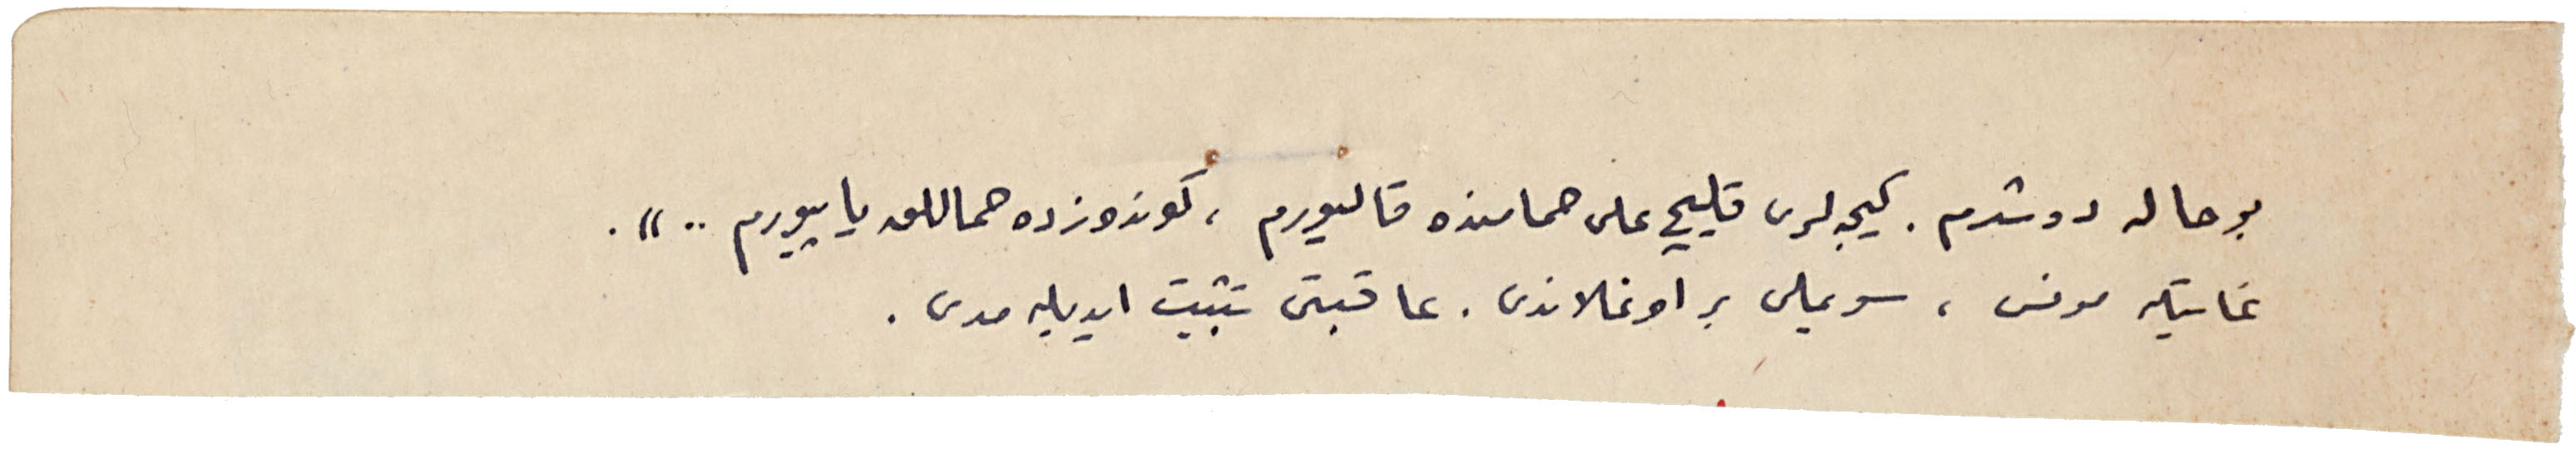 بو حاله دوشدم . كیجه لری قلیچ علی حمامنده قالیورم ، كوندوزده حماللق یاپیورم .. » .
غایتله مونس ، سویملی بر اوغلاندی . عاقبتی تثبیت ایدیله مدی .